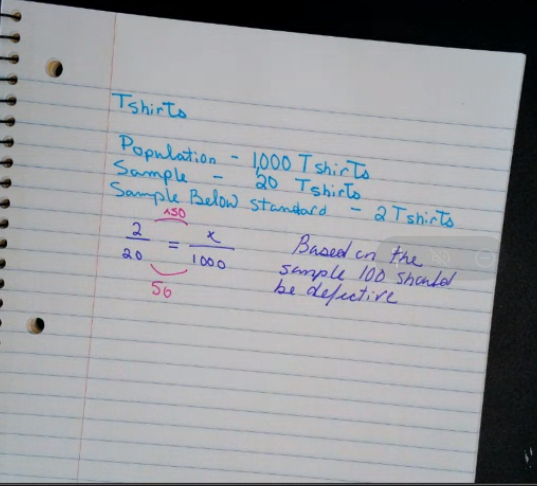 Tshirts
Population - 1,000 Tshirts
Sample - 20 Tshirts
Sample Below standard - 2 Tshirts
x50
2/20 = x/1000
50
Based on the
sample 100 should
be defective